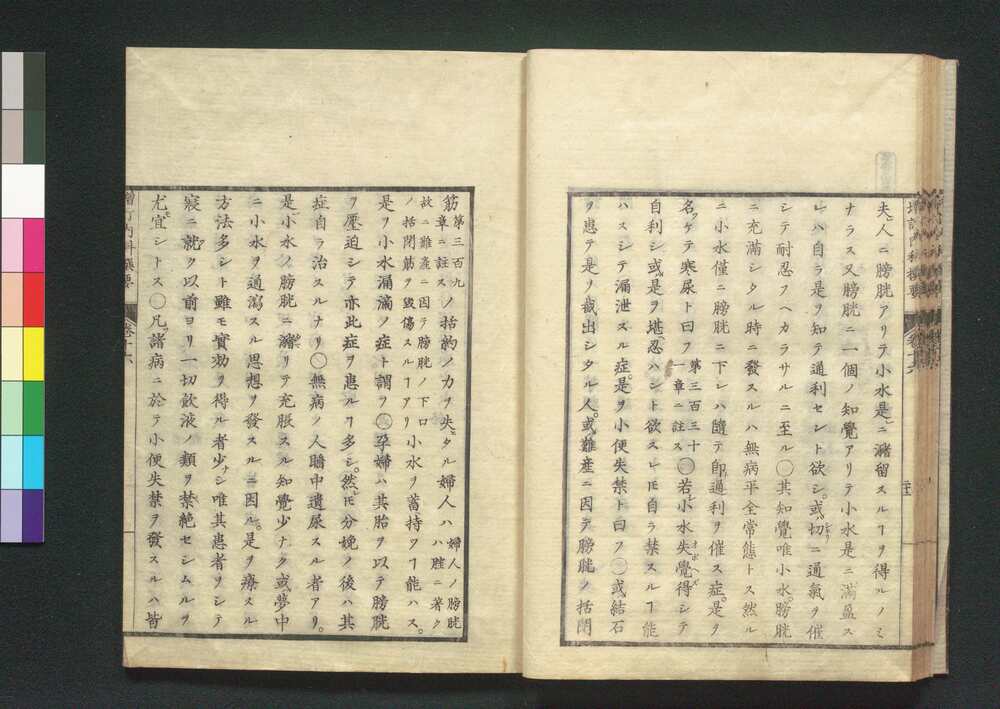 増訂内科撰要
夫人ニ膀胱アリテ小水是ニ瀦留スルヿヲ得ルノミ
ナラス又膀胱ニ一個ノ知覺アリテ小水是ニ滿盈ス
レハ自ラ是ヲ知テ通利セント欲シ。或切ニ通氣ヲ催
シテ耐忍フヘカラサルニ至ル〇其知覺唯小水。膀胱
ニ充滿シタル時ニ發スルハ無病平全常態トス然ル
ニ小水僅ニ膀胱ニ下レハ隨テ即通利ヲ催ス症。是ヲ
名ケテ寒尿ト曰フ第三百三十一章ニ註ス〇若小水失覺得シテ
自利シ或是ヲ堪忍ハント欲スレ𪜈自ラ禁スルヿ能
ハスシテ漏泄スル症。是ヲ小便失禁ト曰フ〇或結石
ヲ患テ是ヲ截出シタル人。或難產ニ因テ膀胱ノ括閉
筋第三百九章ニ註スノ括約ノ力ヲ失タル婦人ハ婦人ノ膀胱ハ腟ニ著ク
故ニ難產ニ因テ膀胱ノ下口ノ括閉筋ヲ毀傷スルヿアリ小水ヲ蓄持ヲヿ能ハス。
是ヲ小水漏滿ノ症ト謂フ〇孕婦ハ其胎ヲ以テ膀胱
ヲ壓迫シテ亦此症ヲ患ルヿ多シ。然𪜈分娩ノ後ハ其
症自ラ治スルナリ〇無病ノ人瞻中遺尿スル者アリ。
是小水ノ膀胱ニ瀦リテ充脹スル知覺少ナク或夢中
ニ小水ヲ通瀉スル思想ヲ發スルニ因ル。是ヲ療スル
方法多シト雖モ實効ヲ得ル者少シ唯其患者ヲシテ
寢ニ就ク以前ヨリ一切飲液ノ類ヲ禁絶セシムルヲ
尤宜シトス〇凡諸病ニ於テ小便失禁ヲ發スルハ皆
増訂内科撰要
卷十六